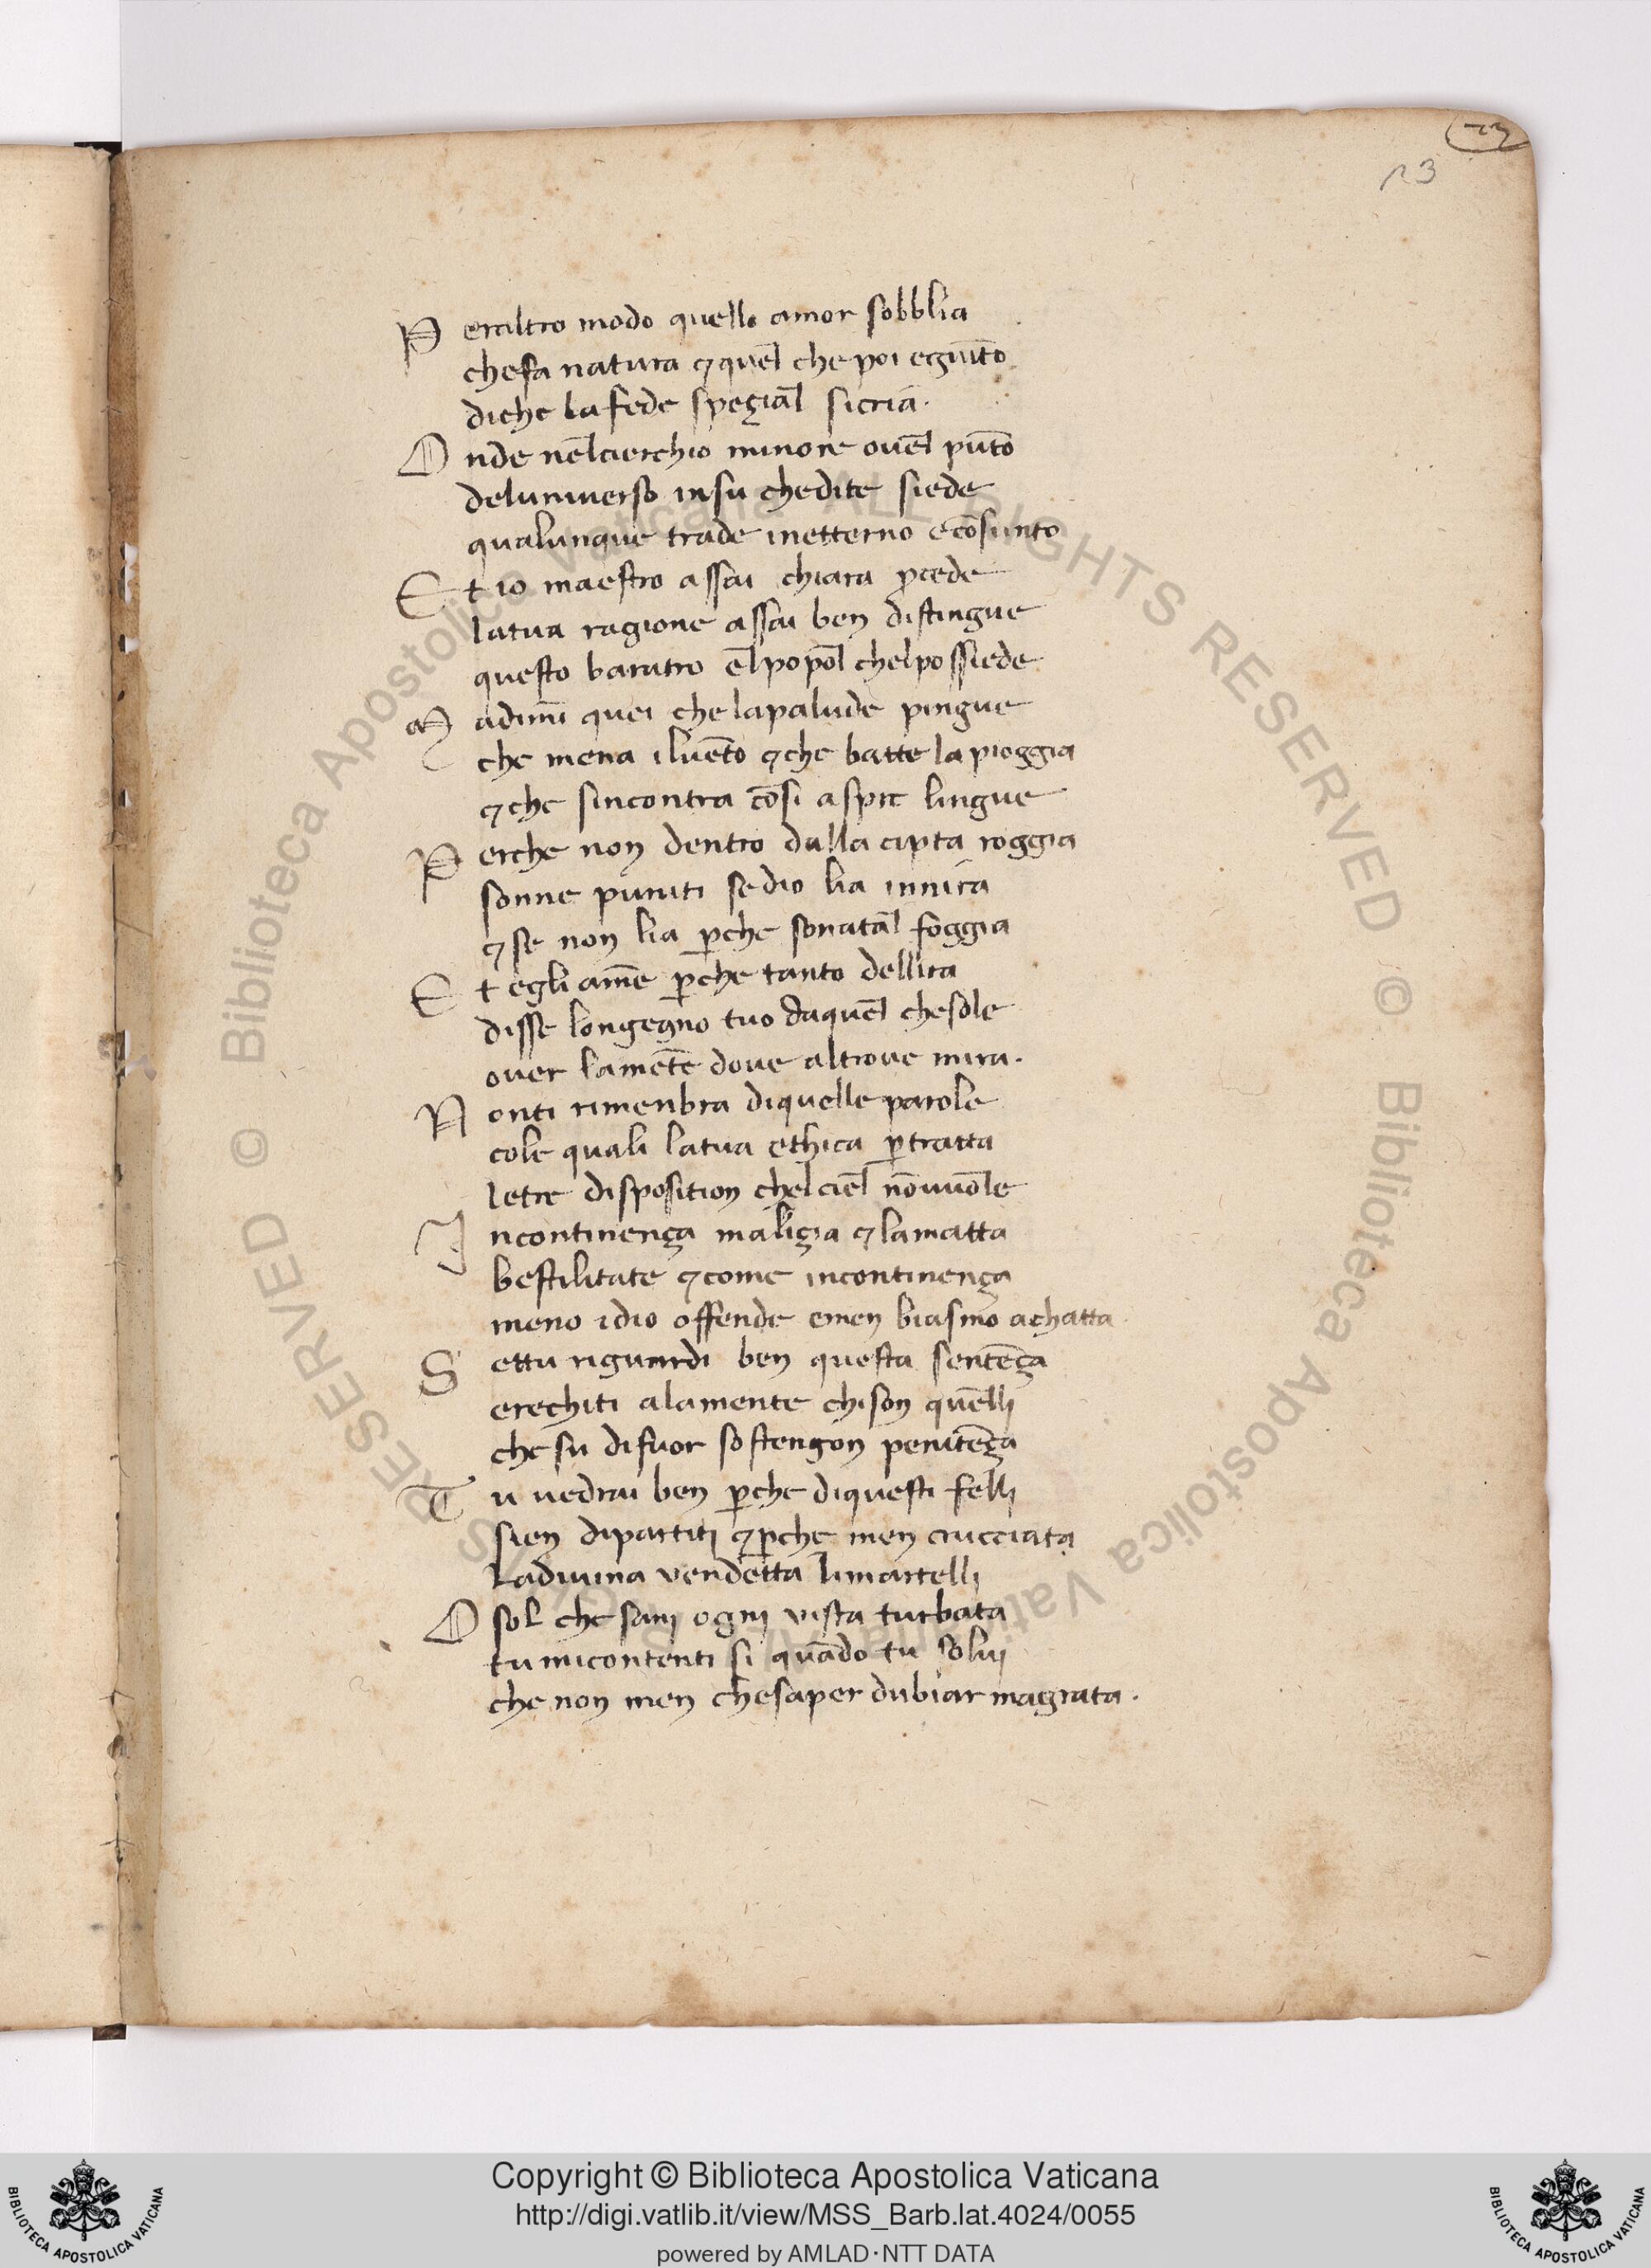 23
23
Peraltro modo quello amor sobblia
chefa natura ⁊ quel̄ che poi egiūto
diche la fede speçial̄ sicria.
Onde nel̄cierchio minore ouel̄ pūto
deluniuerso insu chedite siede
qualunque trade inetterno ecōsunto
Et io maestro assai chiara ꝓcede
latua ragione assai ben distingue
questo baratro el̄popol̄ chelpossiede
Madimī quei che lapalude pingue
che mena iluēto ⁊ che batte la pioggia
⁊ che sincontra cōsi aspre lingue
Perche non dentro dalla cipta roggia
sonne puniti sedio lia innira
⁊ se non lia ꝑche sonatal̄ foggia
Et egli amē ꝑche tanto dellira
disse longegno tuo daquel̄ chesole
ouer lamēte doue altroue mira.
Nonti rimenbra diquelle parole
cole quali latua ethica ꝑtratta
letre disposition chelciel̄ nōvuole
Incontinença maliçia ⁊ lamatta
bestilitate ⁊ come incontinença
meno idio offende emen biasmo achatta
Settu riguardi ben questa sentēça
erechiti alamente chison quēlli
che su difuor sostengon penitēça
Tu uedrai ben ꝑche diquesti felli
sien dipartiti ⁊ ꝑche men crucciata
Ladiuina vendetta limartelli
O sol che sani ogni vista turbata
tu micontenti si quādo tu solui
che non men chesaper dubiar magrata.
© Biblioteca Apostolica Vaticana ALL RIGHTS RESERVED © Biblioteca Apostolica Vaticana ALL RIGHTS RESERVED
Copyright © Biblioteca Apostolica Vaticana
http://digi.vatlib.it/view/MSS_Barb.lat.4024/0055
powered by AMLAD·NTT DATA
BIBLIOTECA APOSTOLICA VATICANA
BIBLIOTECA APOSTOLICA VATICANA